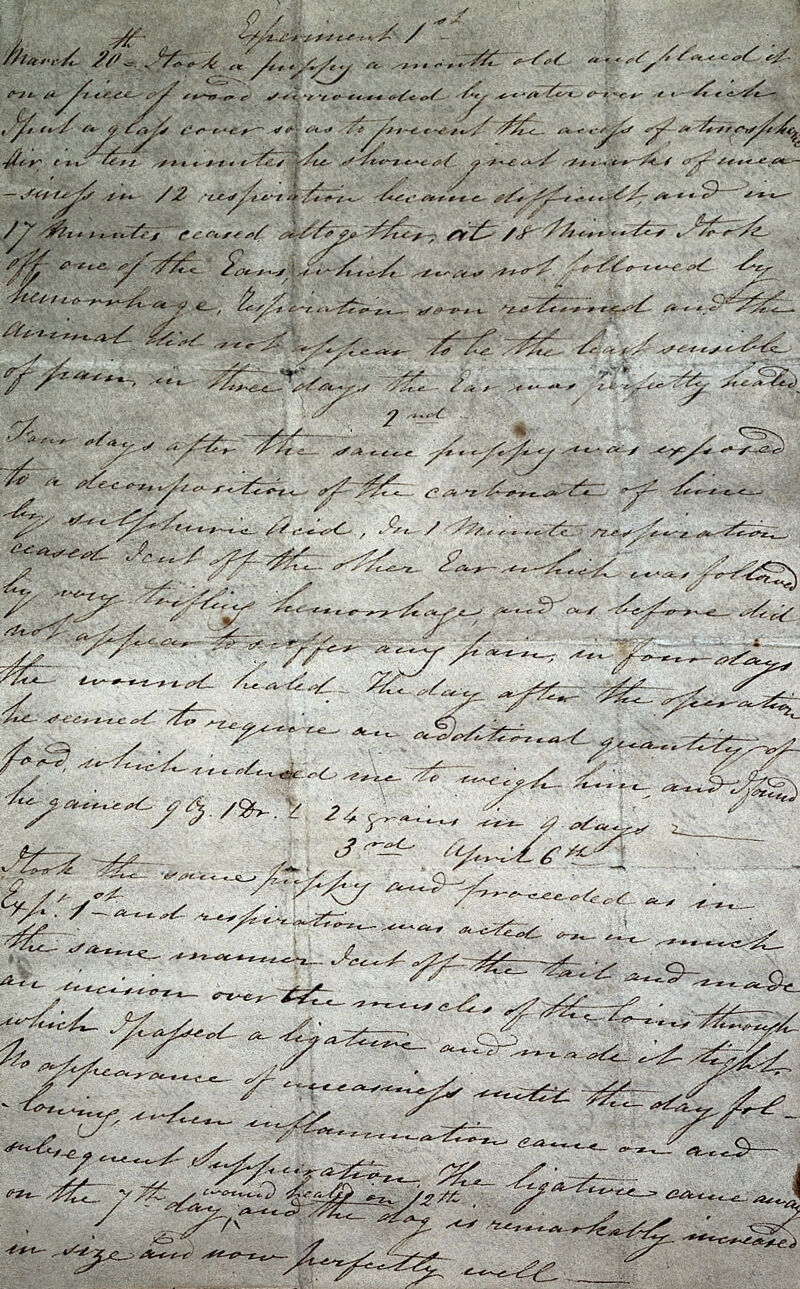 Experiment 1st
March 20th I took a puppy a month old and placed it
on a piece of wood surrounded by water over which
I put a glass cover so as to prevent the access of atmospheric
Air in ten minutes he showed great marks of unea-
-siness in 12 respiration became difficult, and in
17 Minutes ceased altogether, at 18 Minutes I took
off one of the Ears which was not followed by
hemorrhage, respiration soon returned and the
animal did not appear to be the least sensible
of pain, in three days the Ear was perfectly healed.
2nd
Four days after the same puppy was exposed
to a decomposition of the carbonate of lime
by sulphuric Acid, In 1 Minute respiration
ceased I cut off the other Ear which was followed
by very trifling hemorrhage, and as before did
not appear to suffer any pain, in four days
the wound healed - The day after the operation
he seemed to require an additional quantity of
food, which induced me to weigh him, and I found
he gained 9 oz. 1 Dr. & 24 grains in 9 days
3rd April 6th
I took the same puppy and proceeded as in
Expt. 1st and respiration was acted on in much
the same manner I cut off the tail and made
an incision over the muscles of the loins through
which I passed a ligature and made it tight.
No appearance of uneasiness until the day fol-
-lowing, when inflammation came on and
subsequent Suppuration, The ligature came away
wound healed on 12th
on the 7th day, and the dog is remarkably increased
in size and now perfectly well